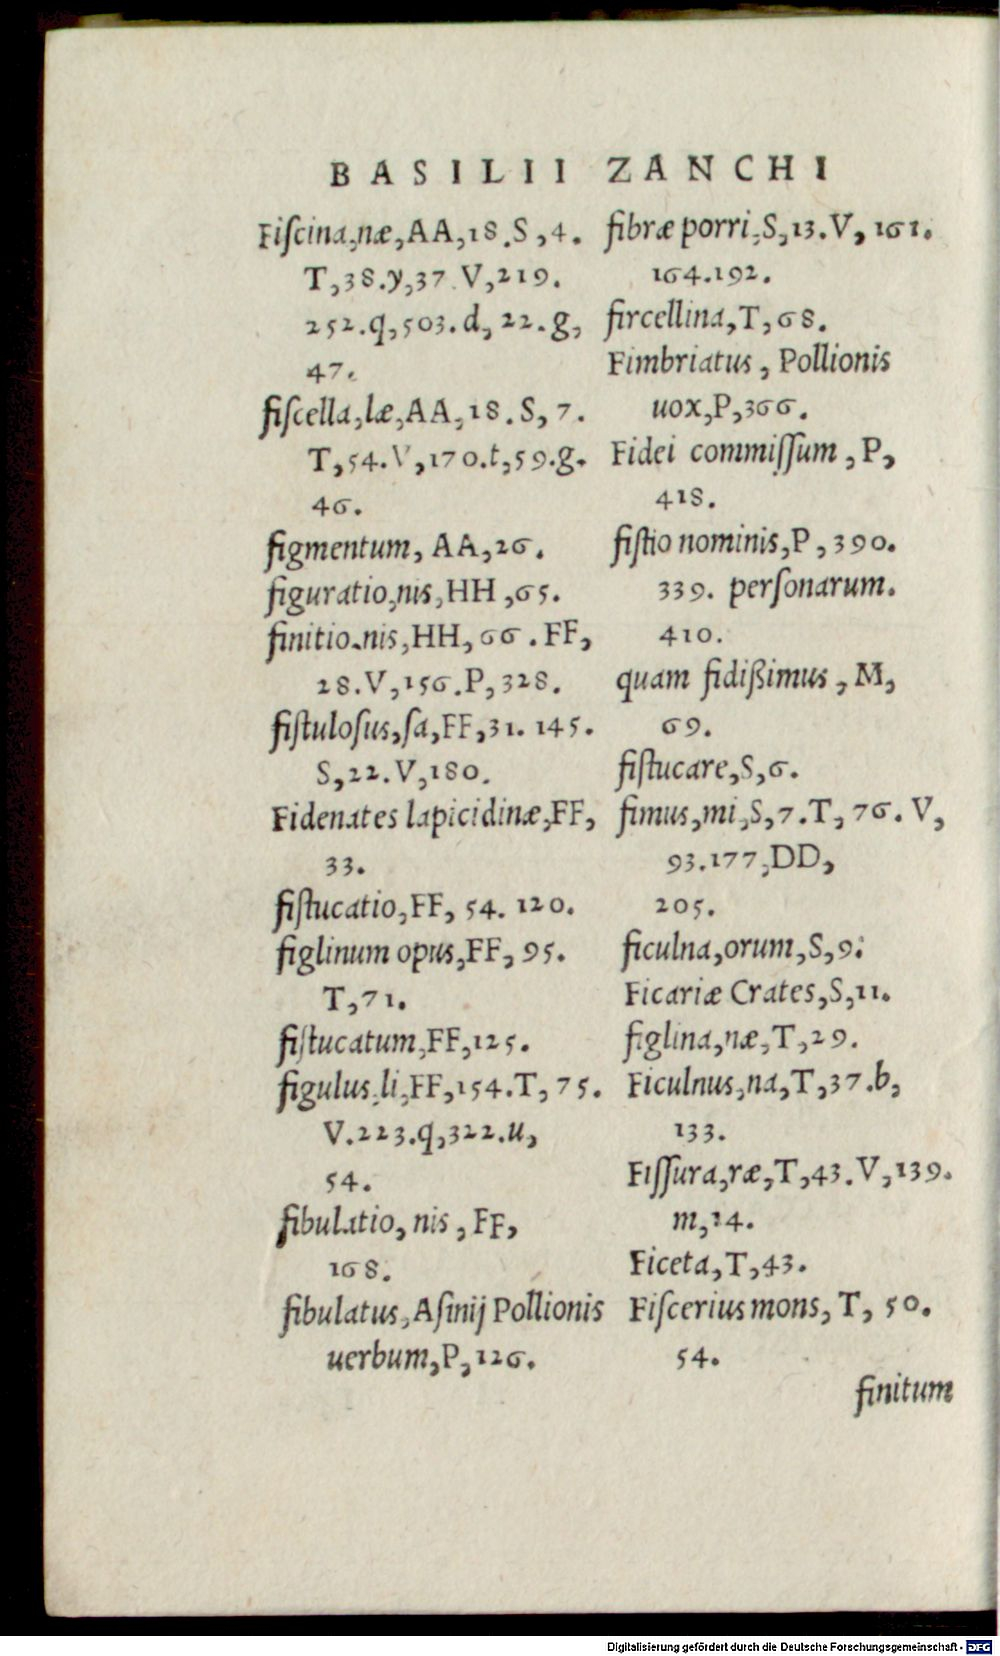 BASILII ZANCHI
Fiſcina,næ,AA,18.S,4.
T,38.y,37.V,219.
252.q,503.d,22.g,
47.
fiſcella,læ,AA,18.S,7.
T,54.V,170.t,59.g.
46.
figmentum, AA,26.
figuratio,nis,HH,65.
finitio,nis,HH,66.FF,
28.V,156.P,328.
fiſtuloſus,ſa,FF,31.145.
S,22.V,180.
Fidenates lapicidinæ,FF,
33.
fiſtucatio,FF,54.120.
figlinum opus,FF,95.
T,71.
fiſtucatum,FF,125.
figulus,li,FF,154.T,75.
V.223.q,322.u,
54.
fibulatio,nis,FF,
168.
fibulatus,Aſinij Pollionis
uerbum,P,126.
fibræ porri,S,13.V,161.
164.192.
fircellina,T,68.
Fimbriatus, Pollionis
uox,P,366.
Fidei commiſſum,P,
418.
fiſtio nominis,P,390.
339. perſonarum.
410.
quam fidißimus,M,
69.
fiſtucare,S,6.
fimus,mi,S,7.T,76.V,
93.177,DD,
205.
ficulna,orum,S,9.
Ficariæ Crates,S,11.
figlina,næ,T,29.
Ficulnus,na,T,37.b,
133.
Fiſſura,ræ,T,43.V,139.
m,14.
Ficeta,T,43.
Fiſcerius mons,T,50.
54.
finitum
Digitalisierung gefördert durch die Deutsche Forschungsgemeinschaft - DFG